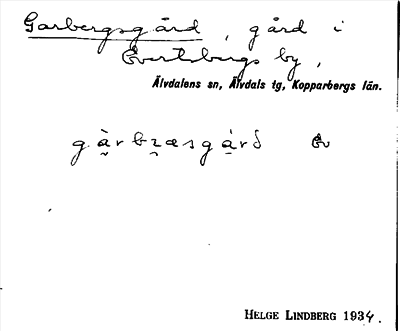 Garbergsgård, gård i
Evertsbergs by,
Älvdalens sn, Älvdals tg, Kopparbergs län.
gàrbræsgárd Ev
HELGE LINDBERG 1934.